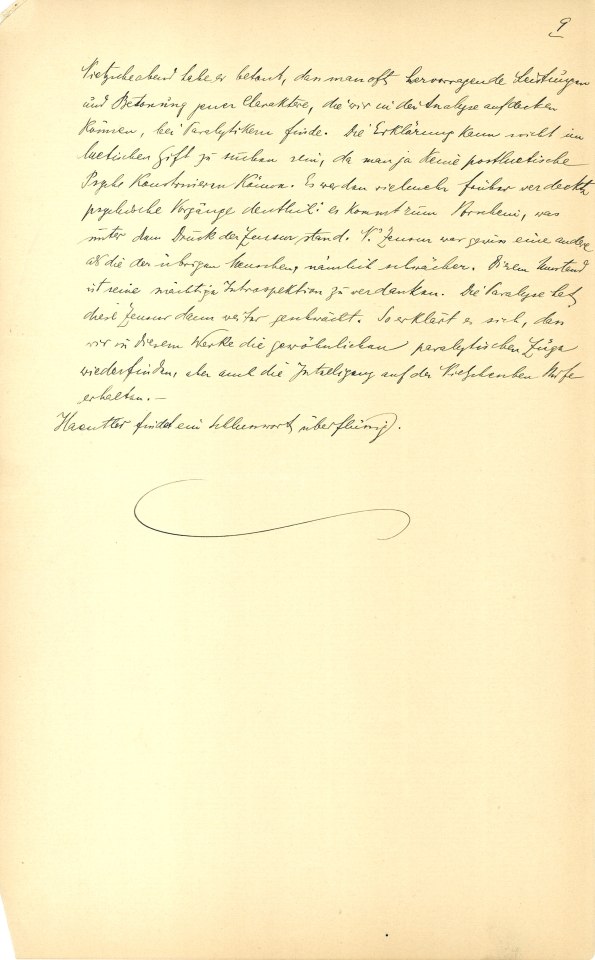 9
Nietzscheabend habe er betont, dass man oft hervorragende Leistungen
und Betonung jener Charaktere, die wir in der Analyse aufdecken
können, bei Paralytikern finde. Die Erklärung kann nicht im
luetischen Gift zu suchen sein, da man ja keine postluetische
Psyche konstruieren könne. Es werden vielmehr früher verdeckte
psychische Vorgänge deutlich: es kommt zum Vorschein, was
unter dem Druck der Zensur stand. N.' Zensur war gewiss eine andere
als die der übrigen Menschen, nämlich schwächer. Diesem Umstand
ist seine mächtige Introspektion zu verdanken. Die Paralyse hat
diese Zensur dann weiter geschwächt. So erklärt es sich, dass
wir in diesem Werke die gewöhnlichen paralytischen Züge
wiederfinden, aber auch die Intelligenz auf der Nietzscheschen Stufe
erhalten. —
Haeutler findet ein Schlusswort überflüssig.